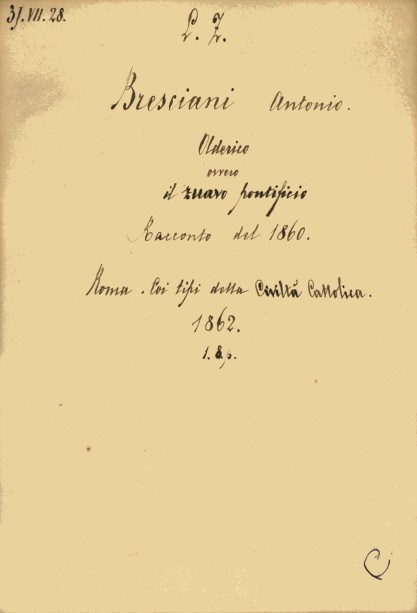 31.VII.28.
L. Z.
Bresciani Antonio.
Olderico
ovvero
il zuavo pontificio
Racconto del 1860.
Roma. Coi tipi della Civiltà Cattolica.
1862.
1. 8,.